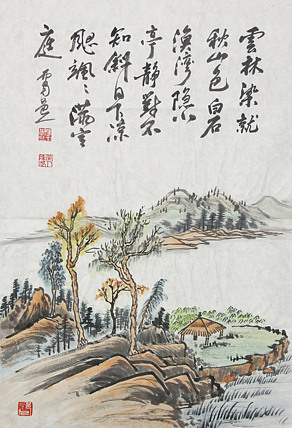 雲林染就
秋山色白石
漁灣隱小
亭靜對不
知斜日下涼
颸颯〻滿空
庭